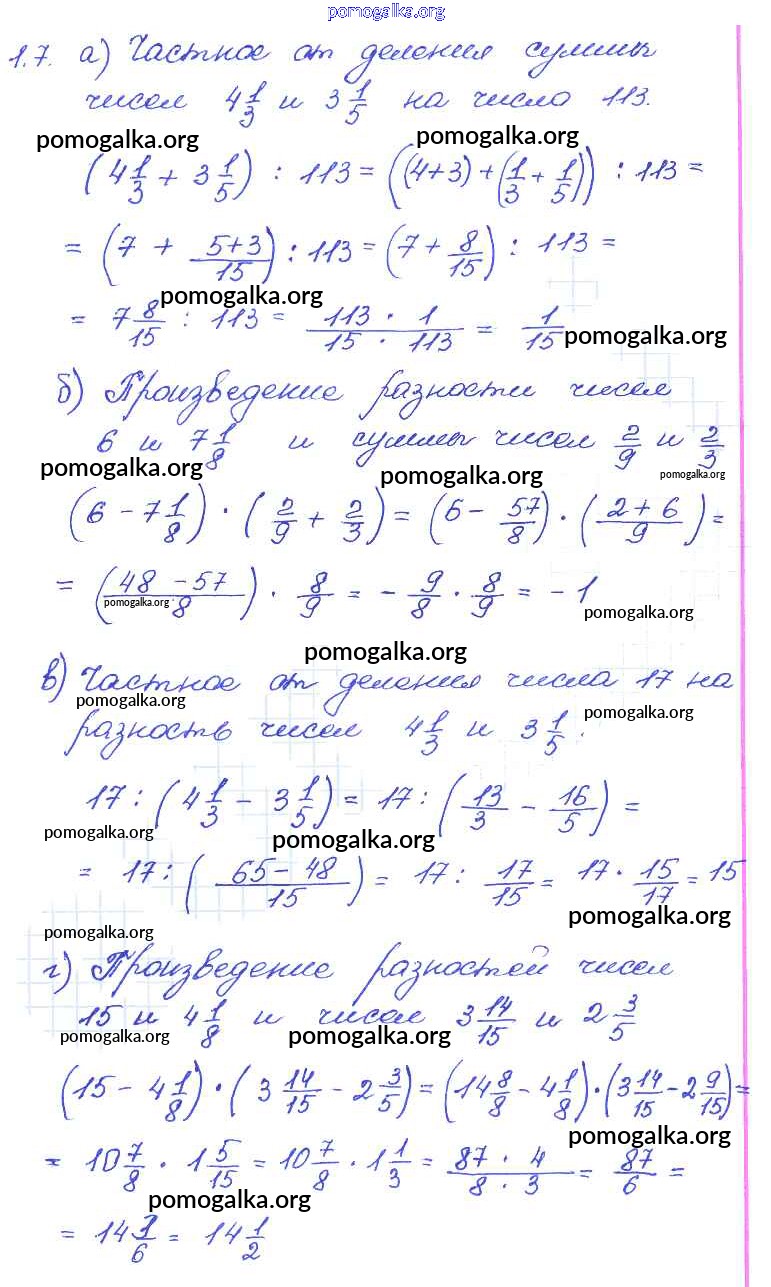 pomogalka.org
1.7. а) Частное от деления суммы
чисел 4 1/3 и 3 1/5 на число 113.
pomogalka.org pomogalka.org
(4 1/3 + 3 1/5) : 113 = ((4+3) + (1/3 + 1/5)) : 113 =
= (7 + (5+3)/15) : 113 = (7 + 8/15) : 113 =
pomogalka.org
= 7 8/15 : 113 = (113 · 1)/(15 · 113) = 1/15 pomogalka.org
б) Произведение разности чисел
6 и 7 1/8 и суммы чисел 2/9 и 2/3
pomogalka.org pomogalka.org pomogalka.org
(6 - 7 1/8) · (2/9 + 2/3) = (6 - 57/8) · ((2+6)/9) =
= ((48 - 57)/8) · 8/9 = - 9/8 · 8/9 = -1
pomogalka.org pomogalka.org
pomogalka.org
в) Частное от деления числа 17 на
pomogalka.org pomogalka.org
разность чисел 4 1/3 и 3 1/5.
17 : (4 1/3 - 3 1/5) = 17 : (13/3 - 16/5) =
pomogalka.org pomogalka.org
= 17 : ((65 - 48)/15) = 17 : 17/15 = 17 · 15/17 = 15
pomogalka.org pomogalka.org
г) Произведение разностей чисел
15 и 4 1/8 и чисел 3 14/15 и 2 3/5
pomogalka.org pomogalka.org
(15 - 4 1/8) · (3 14/15 - 2 3/5) = (14 8/8 - 4 1/8) · (3 14/15 - 2 9/15) =
pomogalka.org
= 10 7/8 · 1 5/15 = 10 7/8 · 1 1/3 = (87 · 4)/(8 · 3) = 87/6 =
pomogalka.org
= 14 3/6 = 14 1/2